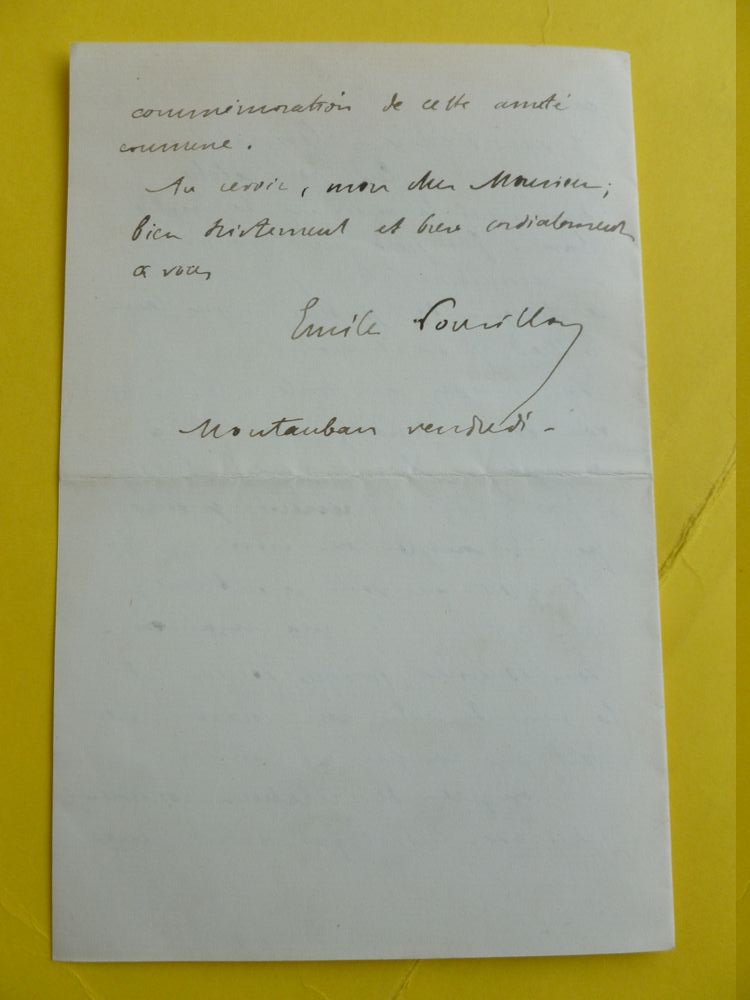 commémoration de cette amitié
commune.
Au revoir, mon cher Monsieur;
bien tristement et bien cordialement
à vous
Emile Pouvillon
Montauban vendredi -